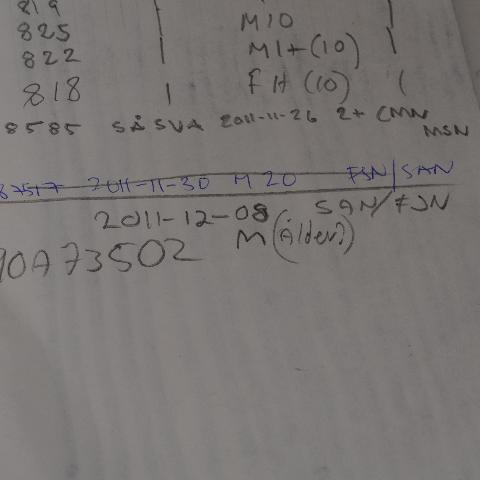 819 |
825 | M10 |
822 | M1+(10) |
818 | FH (10) (
8585 SÅ SVA 2011-11-26 2+ CMN
MSN
87517 2011-11-30 M 20 FSN/SAN
2011-12-08 SAN/FJN
90A73502 M (Ålder?)